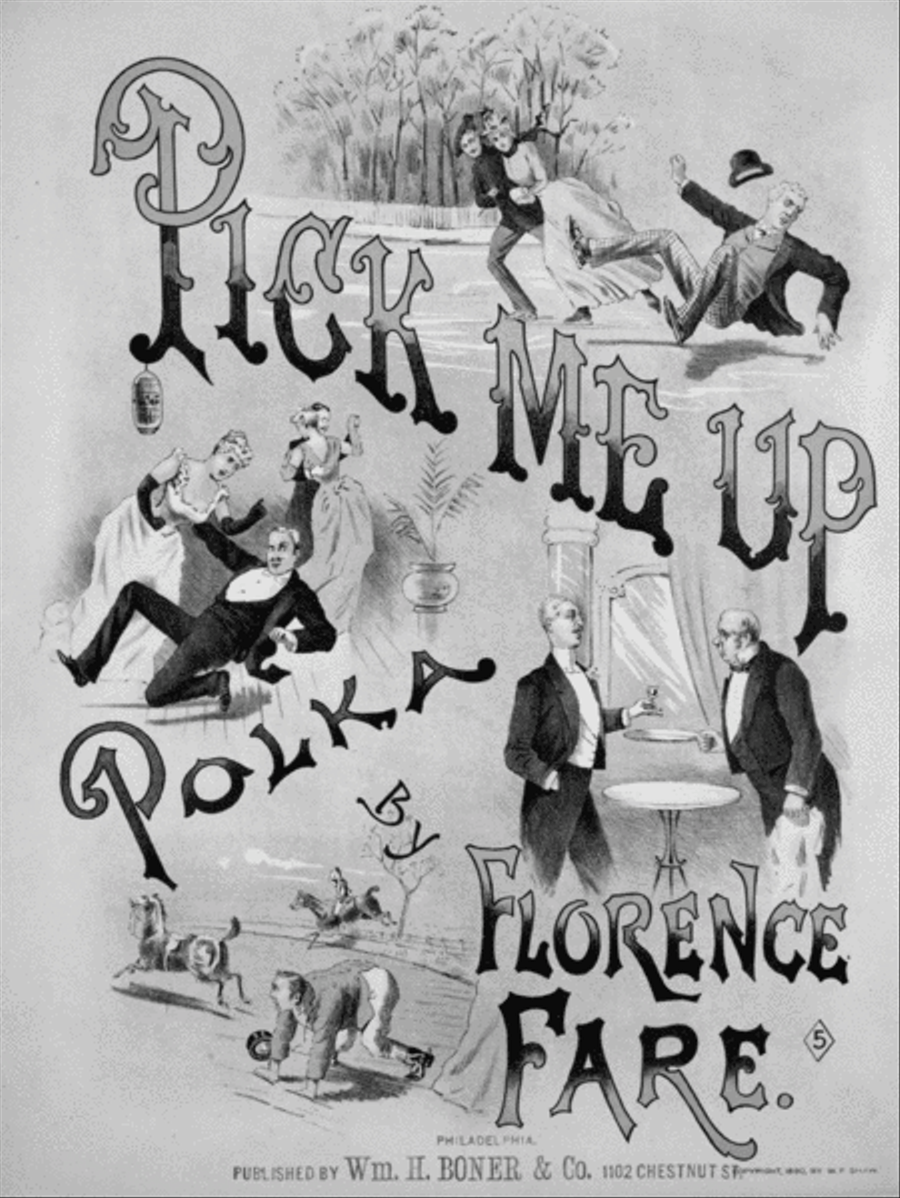 PICK
ME UP
POLKA
BY
FLORENCE
FARE.
5
PHILADELPHIA.
PUBLISHED BY Wm. H. BONER & Co. 1102 CHESTNUT ST.
COPYRIGHT, 1890, BY W. F. SHAW.